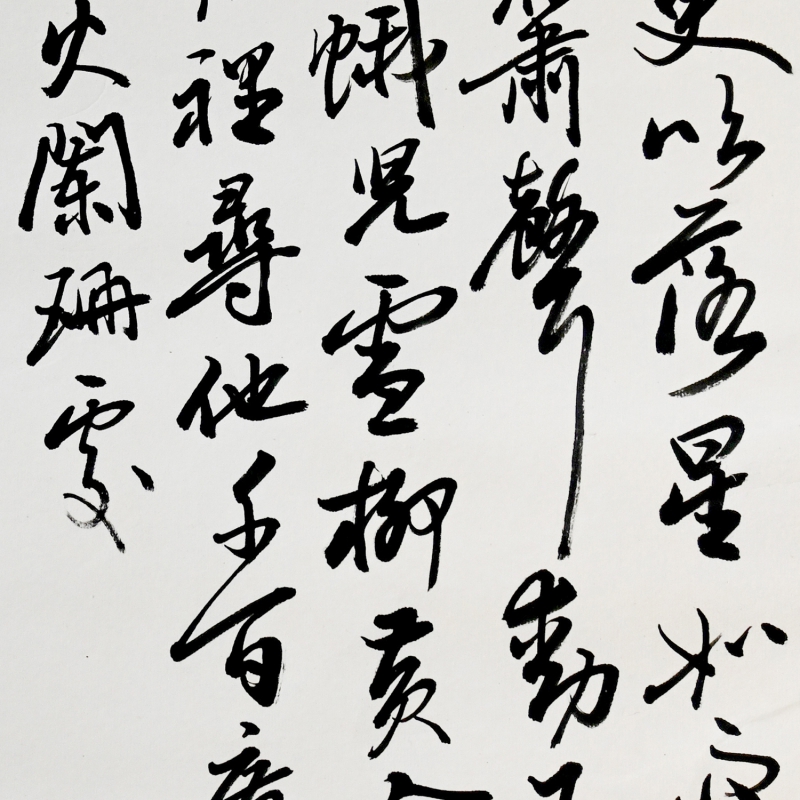 更吹落星如雨
簫聲動
蛾児雪柳黄
裡尋他千百度
火闌珊處